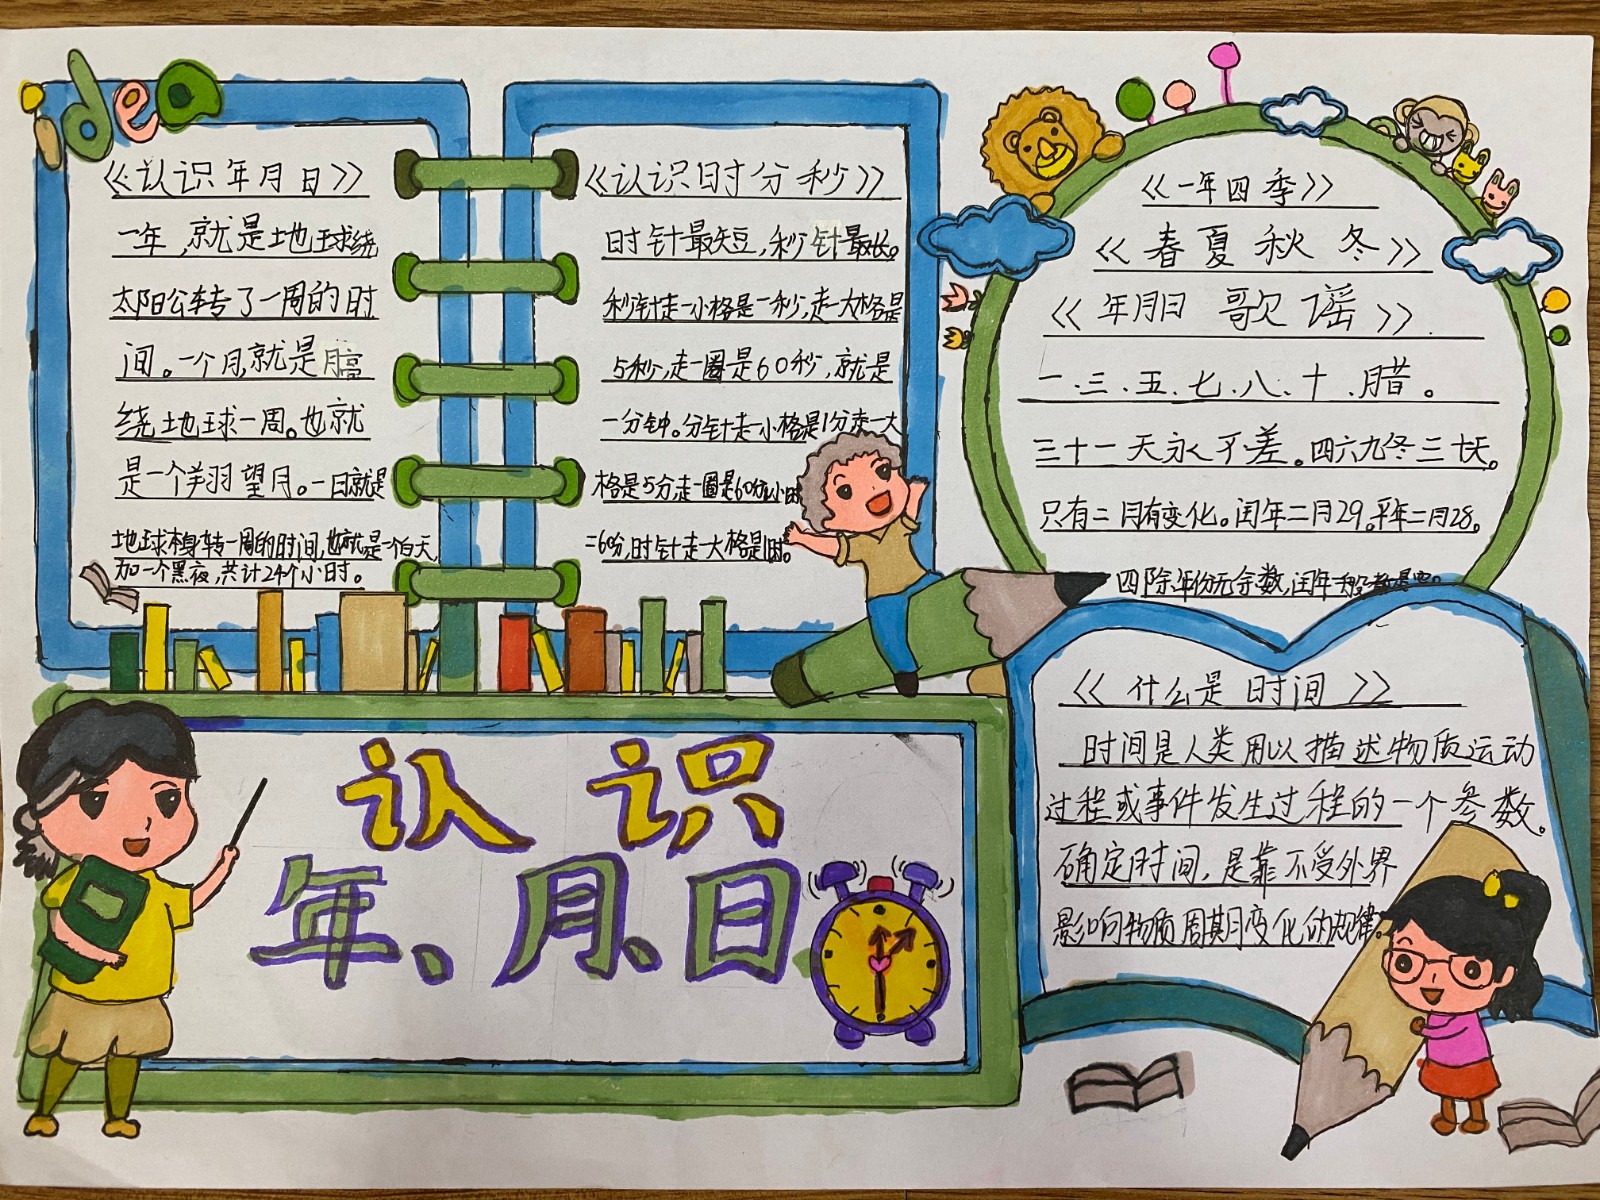 idea
《认识年月日》
一年,就是地球绕
太阳公转了一周的时
间。一个月,就是月亮
绕地球一周。也就
是一个朔望月。一日就是
地球本身转一周的时间,也就是一个白天,
加一个黑夜,共计24个小时。
《认识时分秒》
时针最短,秒针最长。
秒针走一小格是一秒,走一大格是
5秒,走一圈是60秒,就是
一分钟。分针走一小格是1分走一大
格是5分,走一圈是60分
=60分,时针走一大格是1时。
《一年四季》
《春夏秋冬》
《年月日 歌谣》
一、三、五、七、八、十、腊。
三十一天永不差。四六九冬三十天。
只有二月有变化。闰年二月29。平年二月28。
四除年份无余数,闰年
《什么是时间》
时间是人类用以描述物质运动
过程或事件发生过程的一个参数。
确定时间,是靠不受外界
影响物质周期变化的规律。
认识
年、月、日